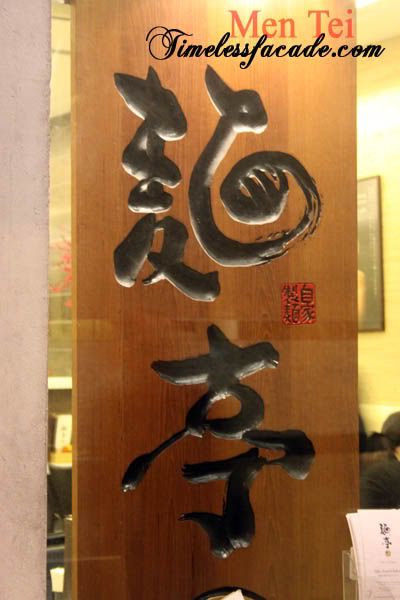 Men Tei
Timelessfacade.com
麺
亭
自家
製麺
麺亭